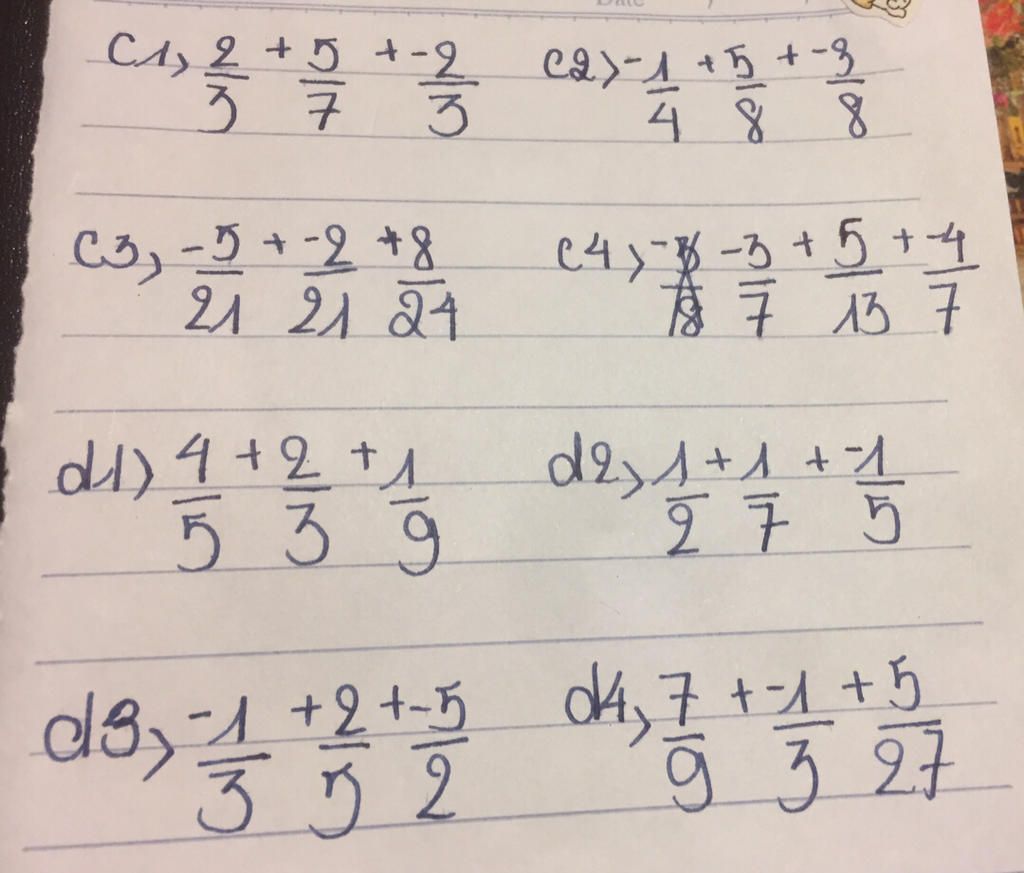 Date
C1, 2/3 + 5/7 + -2/3 C2> -1/4 + 5/8 + -3/8
C3, -5/21 + -2/21 + 8/24 C4> -3/7 + 5/13 + -4/7
d1) 4/5 + 2/3 + 1/9 d2, 1/2 + 1/7 + -1/5
d3, -1/3 + 2/5 + -5/2 d4, 7/9 + -1/3 + 5/27